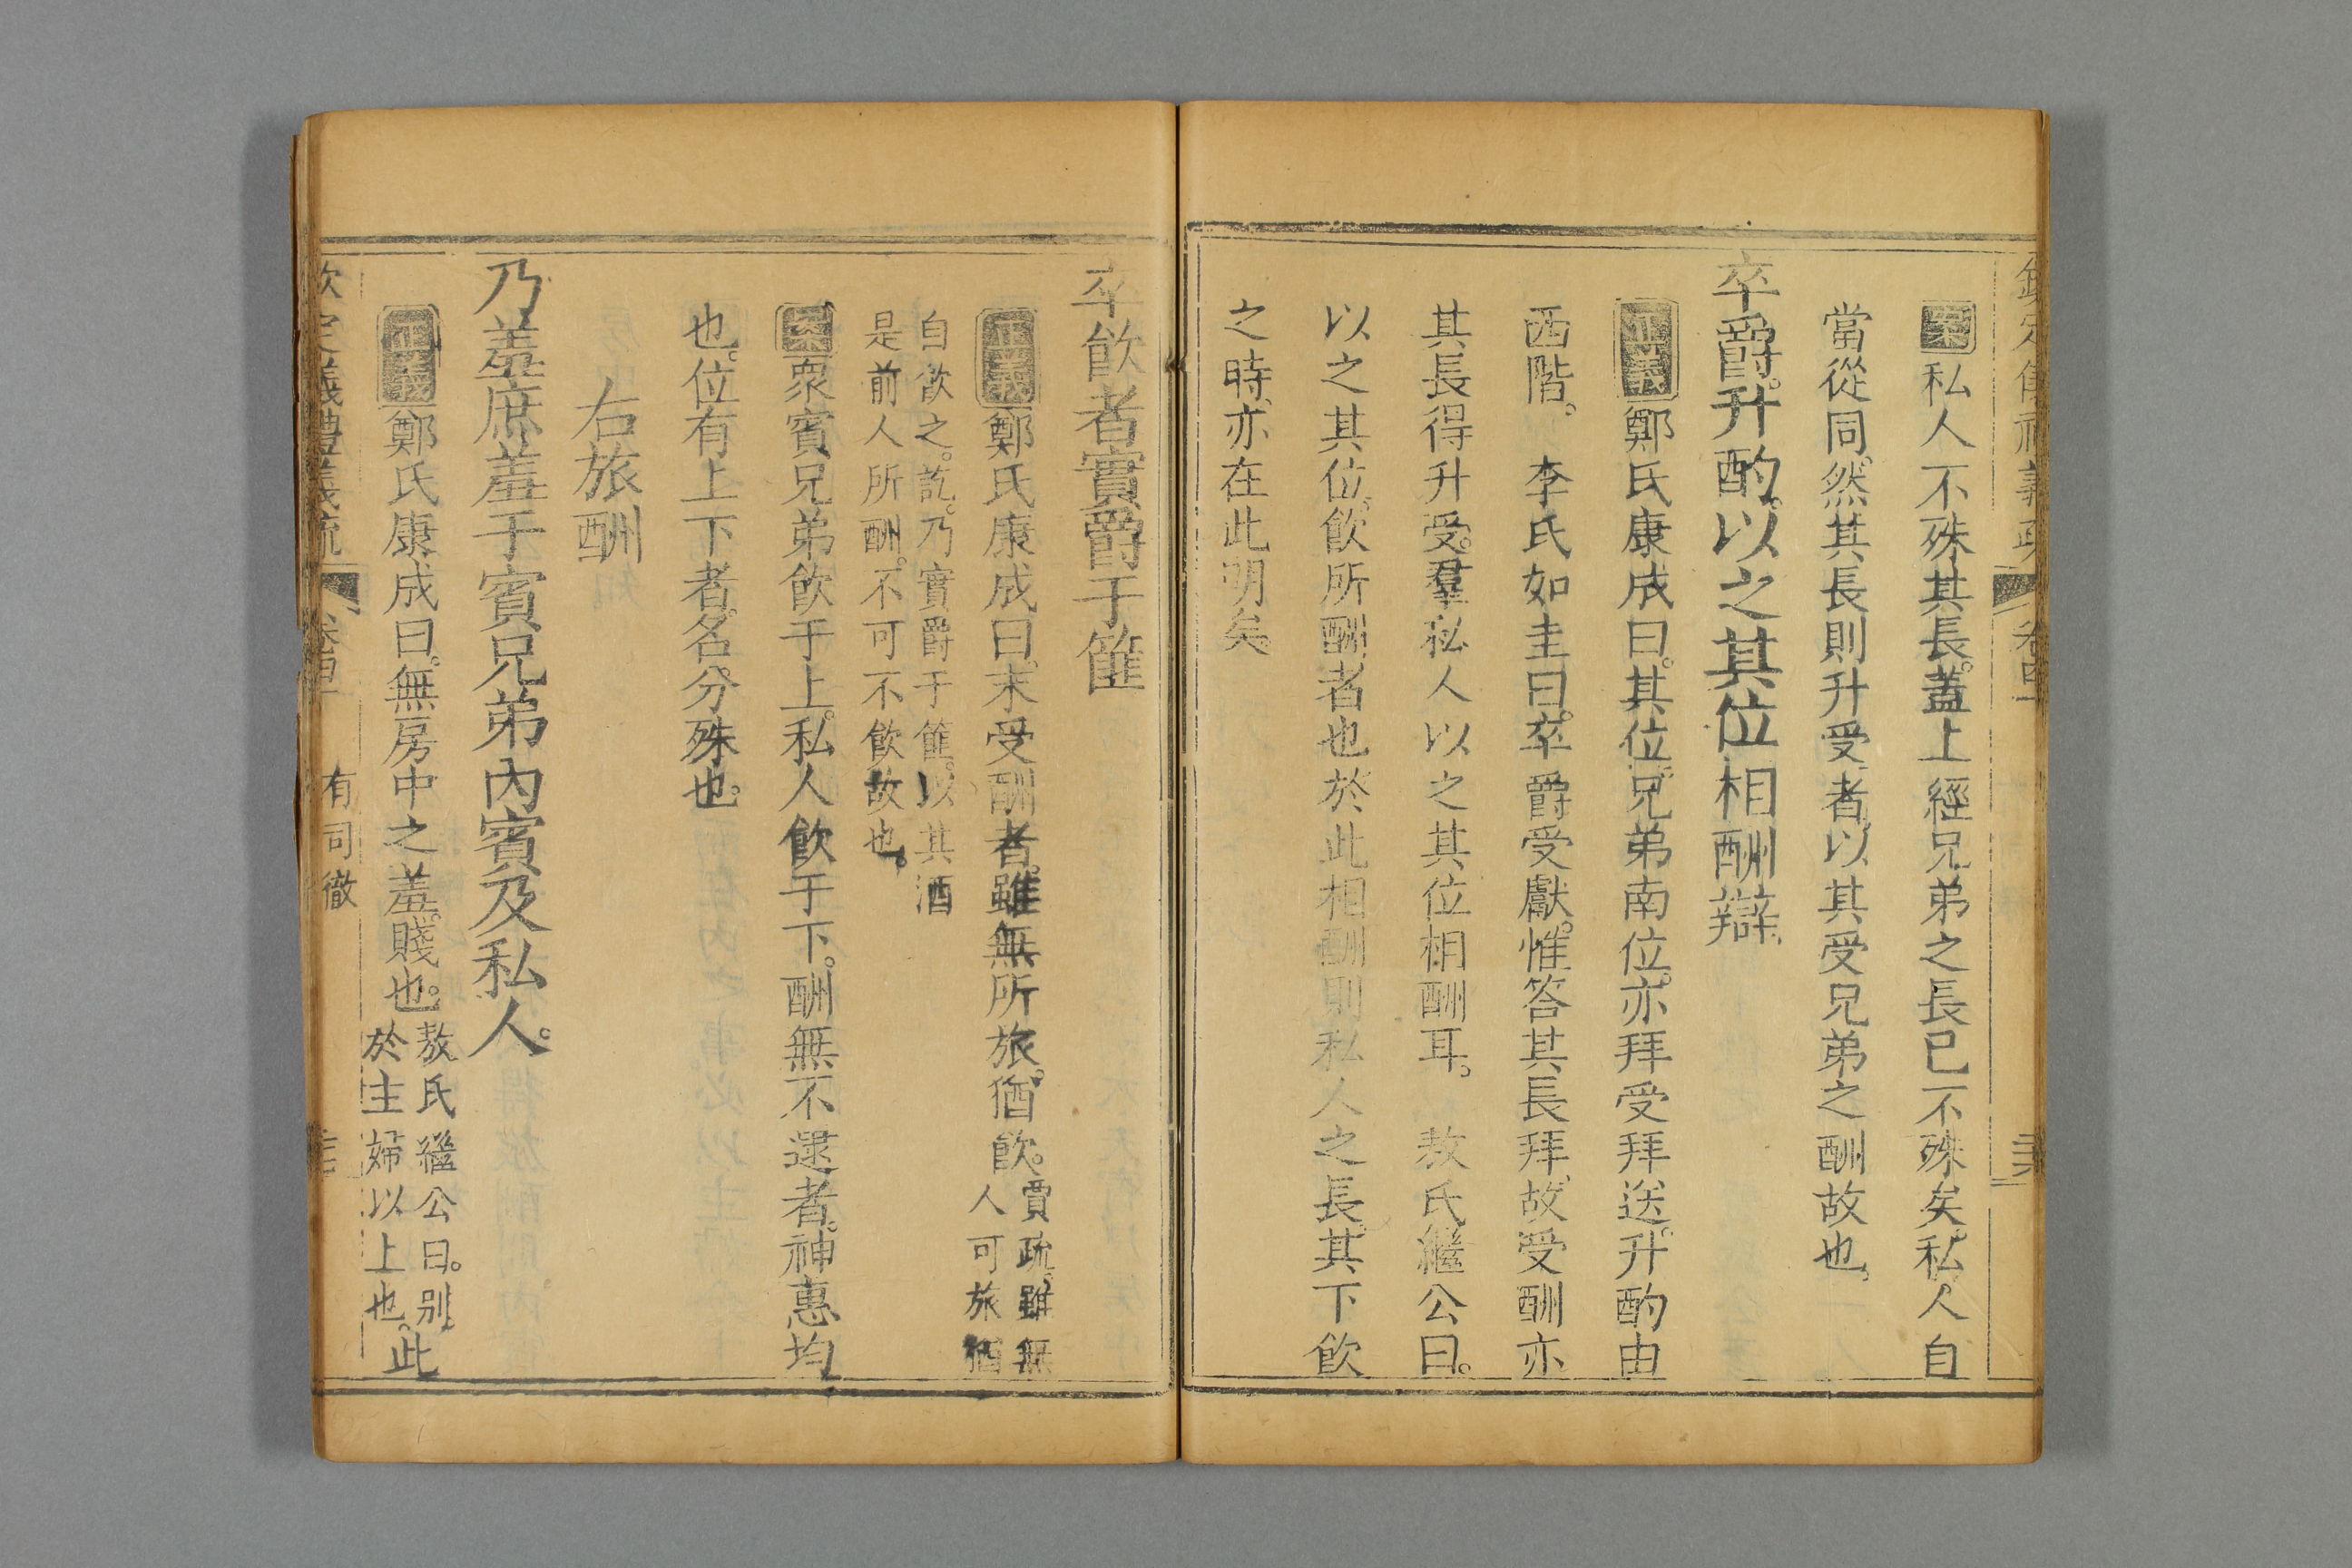 欽定儀禮義疏 卷四
案私人不殊其長。蓋上經兄弟之長已不殊矣。私人自
當從同。然其長則升受者。以其受兄弟之酬故也。
卒爵。升酌。以之其位。相酬辯。
正義鄭氏康成曰。其位。兄弟南位。亦拜受拜送。升酌由
西階。 李氏如圭曰。卒爵受獻。惟答其長拜。故受酬亦
其長得升受。羣私人以之其位相酬耳。 敖氏繼公曰。
以之其位。飲所酬者也。於此相酬則私人之長。其下飲
之時。亦在此明矣。
卒飲者實爵于篚
正義鄭氏康成曰。末受酬者。雖無所旅。猶飲。賈疏。雖無
人可旅猶
自飲之。訖。乃實爵于篚。以其酒
是前人所酬。不可不飲故也。
案衆賓兄弟飲于上。私人飲于下。酬無不逮者。神惠均
也。位有上下者。名分殊也。
右旅酬
乃羞庶羞于賓兄弟內賓及私人。
正義鄭氏康成曰。無房中之羞。賤也。敖氏繼公曰。別
於主婦以上也。此
欽定儀禮義疏 卷四 有司徹